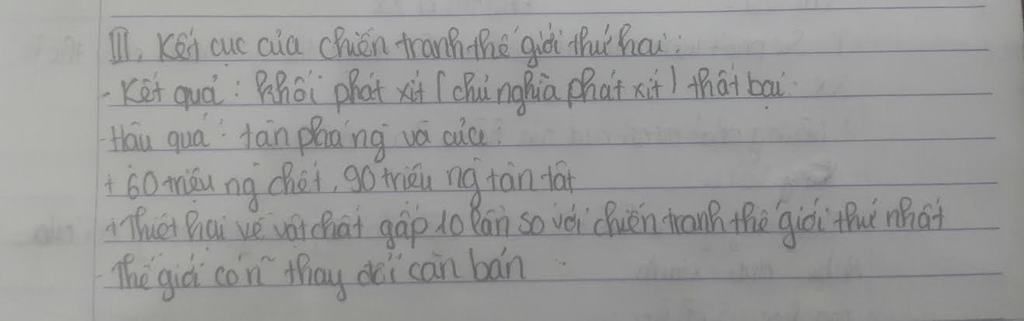 III, Kết cục của chiến tranh thế giới thứ hai:
- Kết quả: Khối phát xít (chủ nghĩa phát xít) thất bại
- Hậu quả: tàn phá ng và của.
+ 60 triệu ng chết, 90 triệu ng tàn tật
+ Thiệt hại về vật chất gấp 10 lần so với chiến tranh thế giới thứ nhất
- Thế giới có n~ thay đổi căn bản